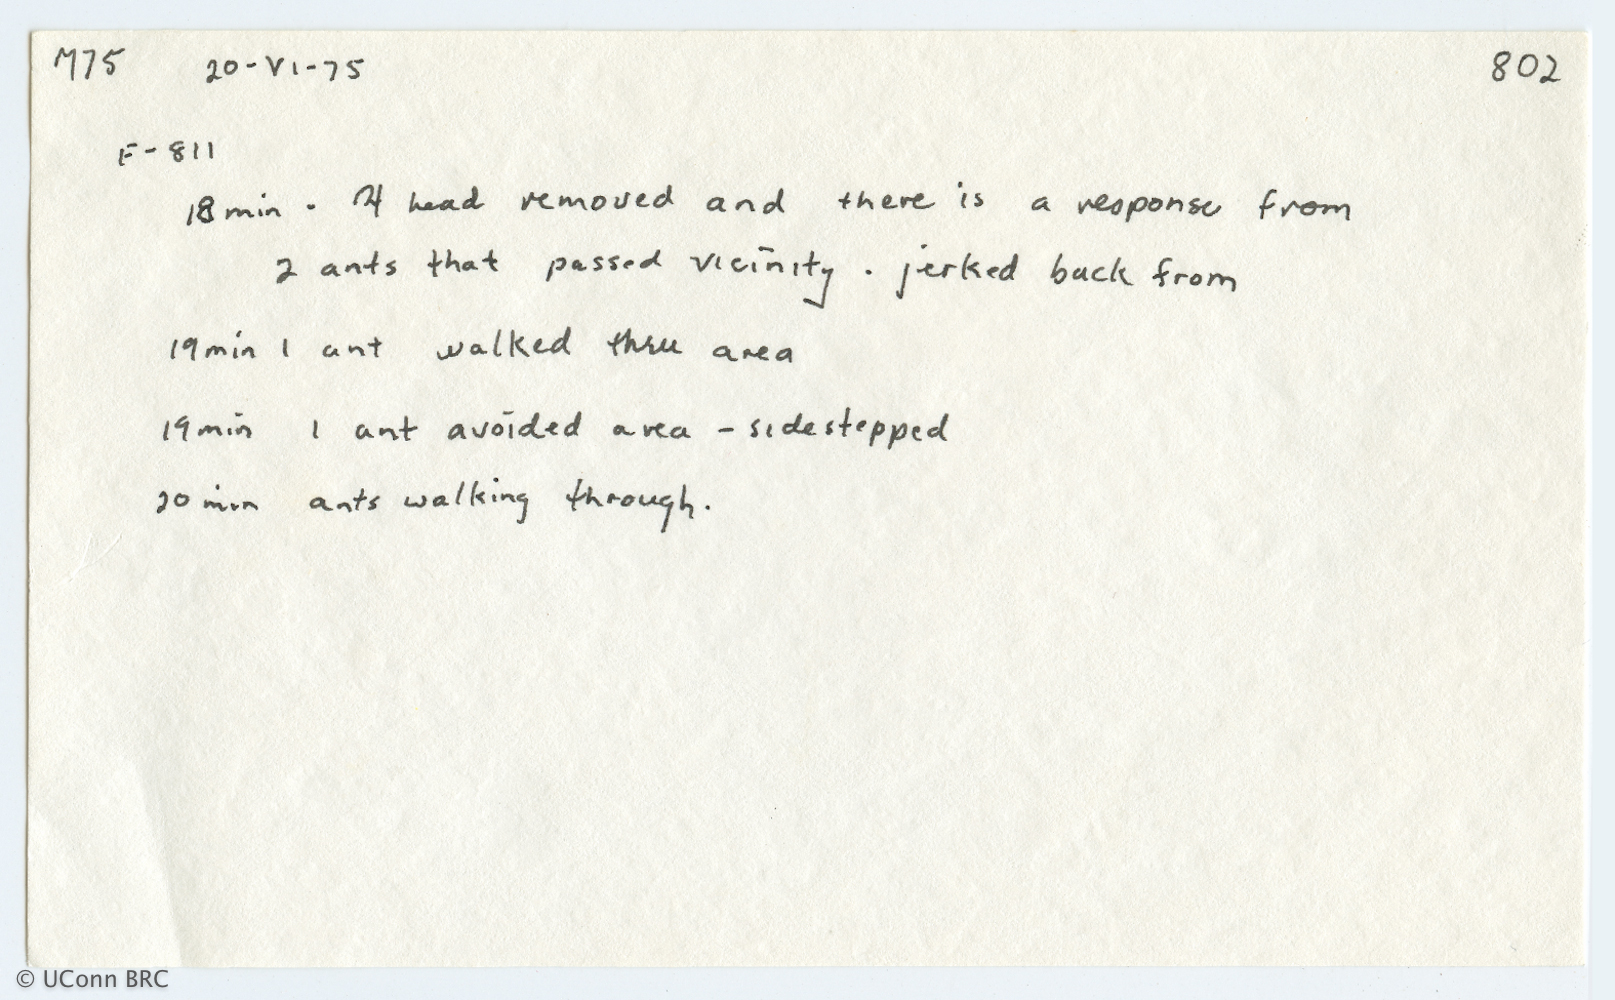 M75 20-VI-75 802
F-811
18 min. ♃ head removed and there is a response from
2 ants that passed vicinity. jerked back from
19 min 1 ant walked thru area
19 min 1 ant avoided area - sidestepped
20 min ants walking through.
© UConn BRC